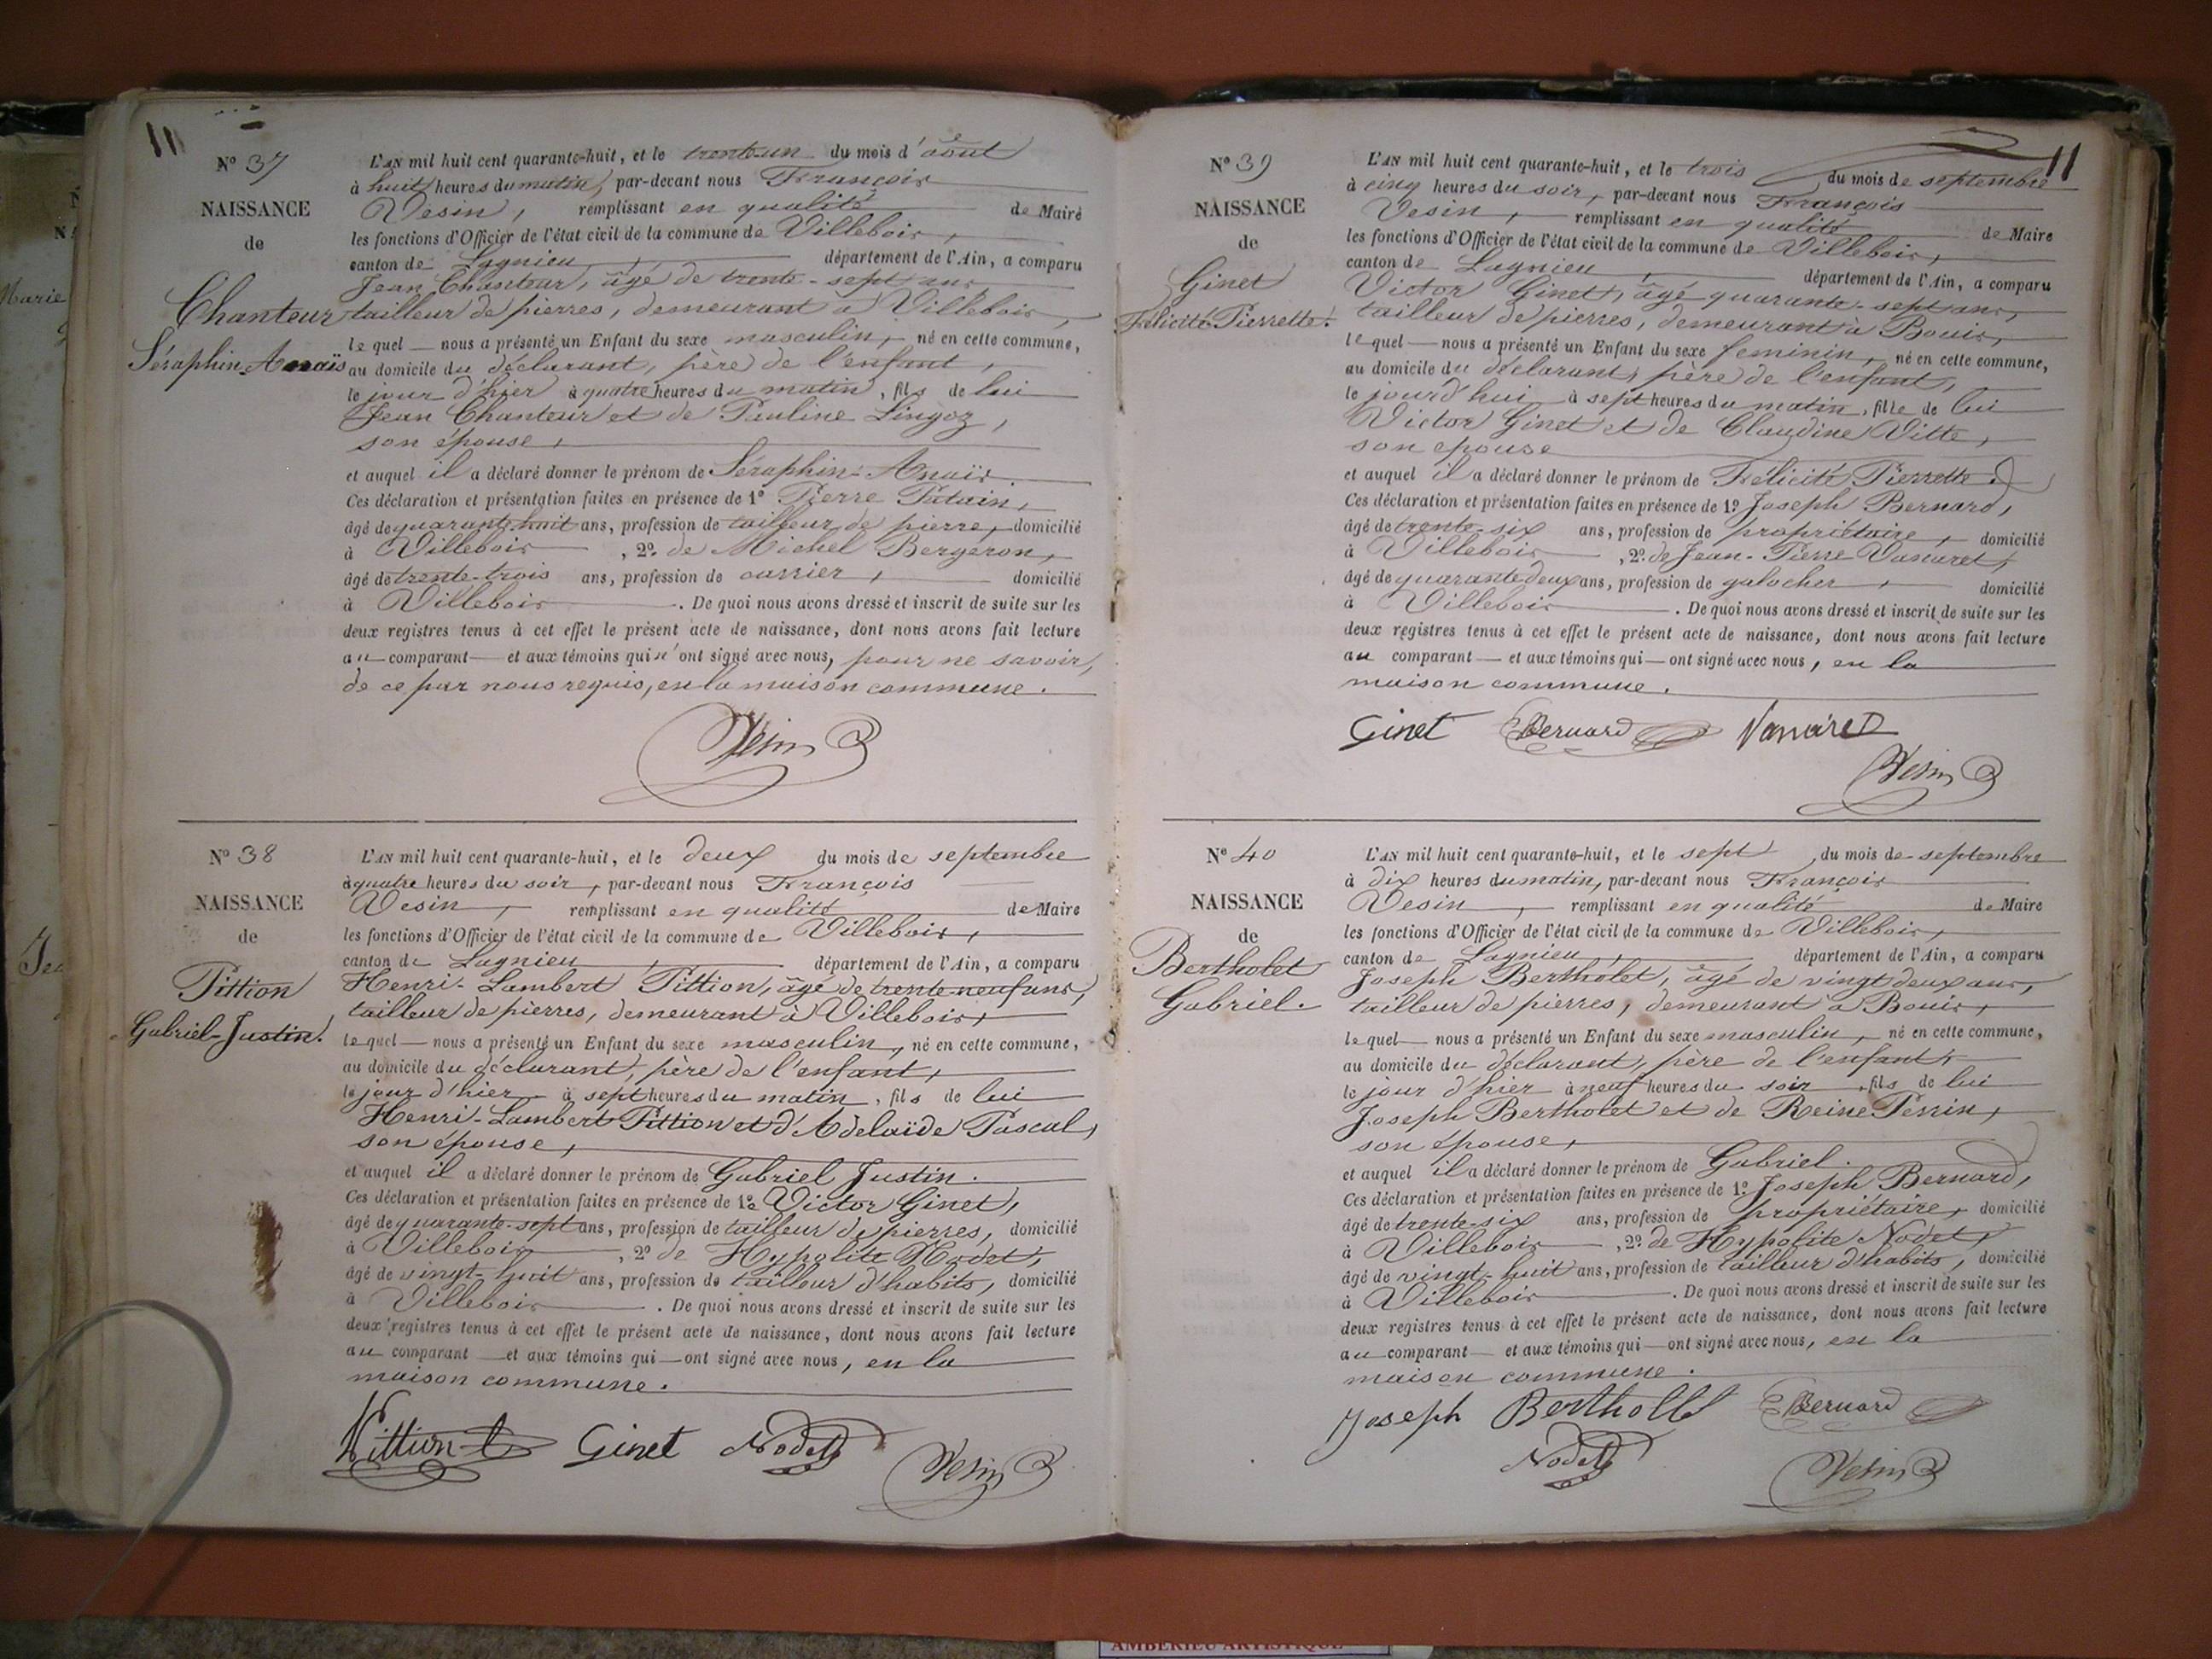 11
N° 37
NAISSANCE
de
Chanteur
Séraphin Anaïs
L'AN mil huit cent quarante-huit, et le trente-un du mois d'août
à huit heures du matin, par-devant nous François
Vesin, remplissant en qualité de Maire
les fonctions d'Officier de l'état civil de la commune de Villebois,
canton de Lagnieu, département de l'Ain, a comparu
Jean Chanteur, âgé de trente-sept ans,
tailleur de pierres, demeurant à Villebois,
lequel nous a présenté un Enfant du sexe masculin, né en cette commune,
au domicile du déclarant, père de l'enfant,
le jour d'hier à quatre heures du matin, fils de lui
Jean Chanteur et de Pauline Lingoz,
son épouse,
et auquel il a déclaré donner le prénom de Séraphin-Anaïs.
Ces déclaration et présentation faites en présence de 1° Pierre
âgé de quarante-huit ans, profession de tailleur de pierre, domicilié
à Villebois, 2° de Michel Bergeron,
âgé de trente-trois ans, profession de carrier, domicilié
à Villebois. De quoi nous avons dressé et inscrit de suite sur les
deux registres tenus à cet effet le présent acte de naissance, dont nous avons fait lecture
au comparant et aux témoins qui n'ont signé avec nous, pour ne savoir,
de ce par nous requis, en la maison commune.
Vesin
N° 38
NAISSANCE
de
Pittion
Gabriel-Justin.
L'AN mil huit cent quarante-huit, et le deux du mois de septembre
à quatre heures du soir, par-devant nous François
Vesin, remplissant en qualité de Maire
les fonctions d'Officier de l'état civil de la commune de Villebois,
canton de Lagnieu, département de l'Ain, a comparu
Henri-Lambert Pittion, âgé de trente-neuf ans,
tailleur de pierres, demeurant à Villebois,
lequel nous a présenté un Enfant du sexe masculin, né en cette commune,
au domicile du déclarant, père de l'enfant,
le jour d'hier à sept heures du matin, fils de lui
Henri-Lambert Pittion et d'Adelaïde Pascal,
son épouse,
et auquel il a déclaré donner le prénom de Gabriel Justin.
Ces déclaration et présentation faites en présence de 1° Victor Ginet,
âgé de quarante-sept ans, profession de tailleur de pierres, domicilié
à Villebois, 2° de Hypolite Nodet,
âgé de vingt-huit ans, profession de tailleur d'habits, domicilié
à Villebois. De quoi nous avons dressé et inscrit de suite sur les
deux registres tenus à cet effet le présent acte de naissance, dont nous avons fait lecture
au comparant et aux témoins qui ont signé avec nous, en la
maison commune.
Pittion Ginet Nodet Vesin
11
N° 39
NAISSANCE
de
Ginet
Félicité Pierrette.
L'AN mil huit cent quarante-huit, et le trois du mois de septembre
à cinq heures du soir, par-devant nous François
Vesin, remplissant en qualité de Maire
les fonctions d'Officier de l'état civil de la commune de Villebois,
canton de Lagnieu, département de l'Ain, a comparu
Victor Ginet, âgé quarante-sept ans,
tailleur de pierres, demeurant à Bouis,
lequel nous a présenté un Enfant du sexe feminin, né en cette commune,
au domicile du déclarant, père de l'enfant,
le jourd'hui à sept heures du matin, fille de lui
Victor Ginet et de Claudine Vitte,
son epouse
et auquel il a déclaré donner le prénom de Félicité Pierrette.
Ces déclaration et présentation faites en présence de 1° Joseph Bernard,
âgé de trente-six ans, profession de propriétaire, domicilié
à Villebois, 2° de Jean-Pierre Vanaret,
âgé de quarante deux ans, profession de galocher, domicilié
à Villebois. De quoi nous avons dressé et inscrit de suite sur les
deux registres tenus à cet effet le présent acte de naissance, dont nous avons fait lecture
au comparant et aux témoins qui ont signé avec nous, en la
maison commune.
Ginet Bernard Vanaret
Vesin
N° 40
NAISSANCE
de
Bertholet
Gabriel.
L'AN mil huit cent quarante-huit, et le sept du mois de septembre
à dix heures du matin, par-devant nous François
Vesin, remplissant en qualité de Maire
les fonctions d'Officier de l'état civil de la commune de Villebois,
canton de Lagnieu, département de l'Ain, a comparu
Joseph Bertholet, âgé de vingt deux ans,
tailleur de pierres, demeurant à Bouis,
lequel nous a présenté un Enfant du sexe masculin, né en cette commune,
au domicile du déclarant, père de l'enfant,
le jour d'hier à neuf heures du soir, fils de lui
Joseph Bertholet et de Reine Perrin,
son épouse,
et auquel il a déclaré donner le prénom de Gabriel.
Ces déclaration et présentation faites en présence de 1° Joseph Bernard,
âgé de trente-six ans, profession de propriétaire, domicilié
à Villebois, 2° de Hypolite Nodet,
âgé de vingt-huit ans, profession de tailleur d'habits, domicilié
à Villebois. De quoi nous avons dressé et inscrit de suite sur les
deux registres tenus à cet effet le présent acte de naissance, dont nous avons fait lecture
au comparant et aux témoins qui ont signé avec nous, en la
maison commune.
Joseph Bertholet Bernard
Nodet Vesin
AMBERIEU ARTISTIQUE